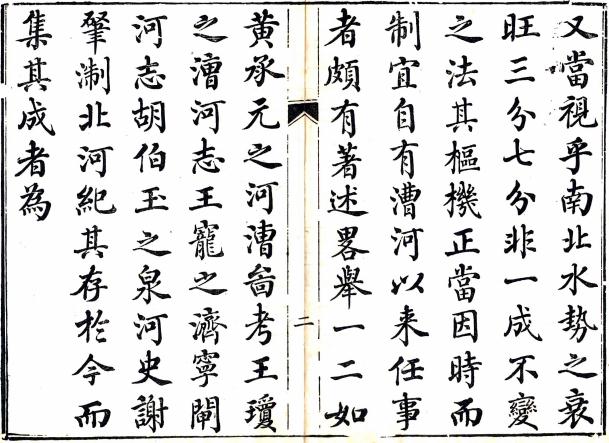 又當視乎南北水勢之衰
旺三分七分非一成不變
之法其樞機正當因時而
制宜自有漕河以来任事
者頗有著述畧舉一二如
二
黄承元之河漕啚考王瓊
之漕河志王寵之濟寧閘
河志胡伯玉之泉河史謝
肇淛北河紀其存於今而
集其成者為